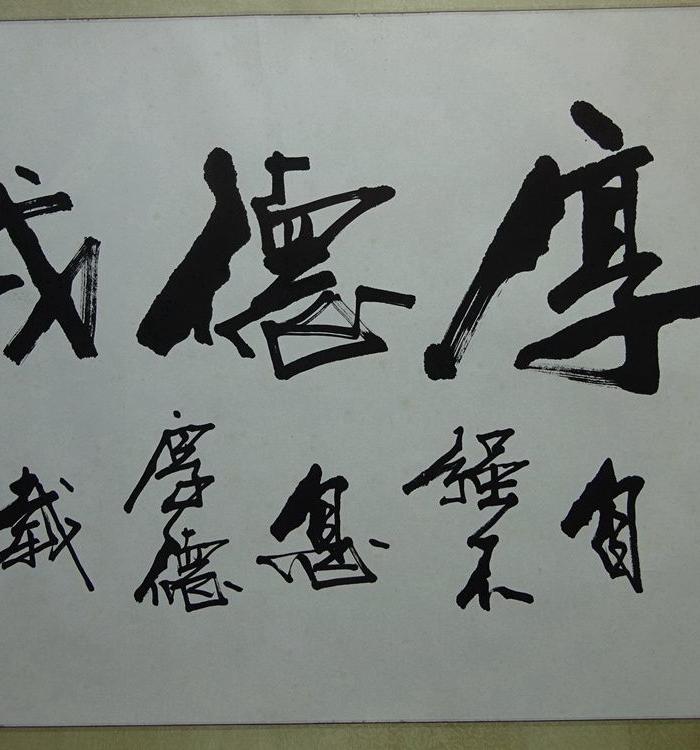 厚德
自強不息厚德載